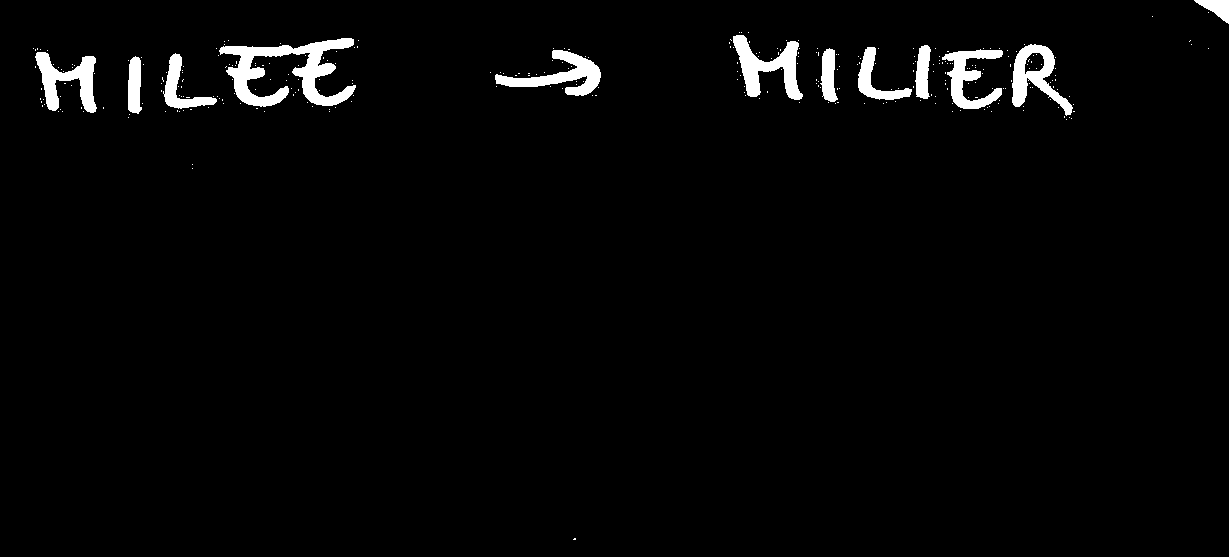 MILEE → MILIER